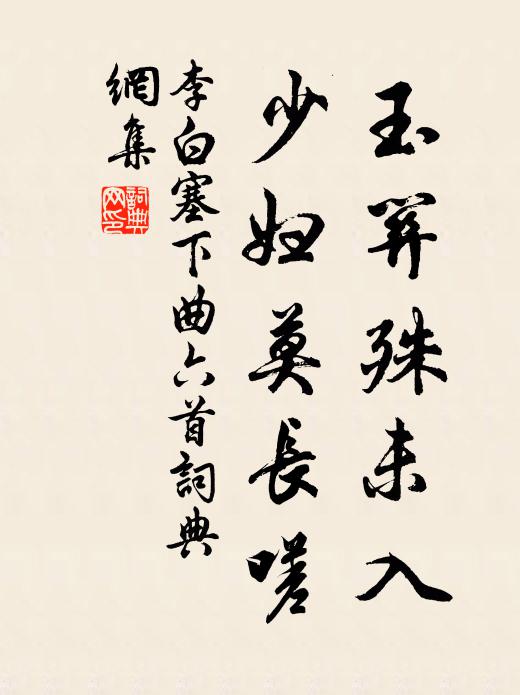 玉關殊未入
少妇莫長嗟
李白塞下曲六首詞典
網集
詞典
网印